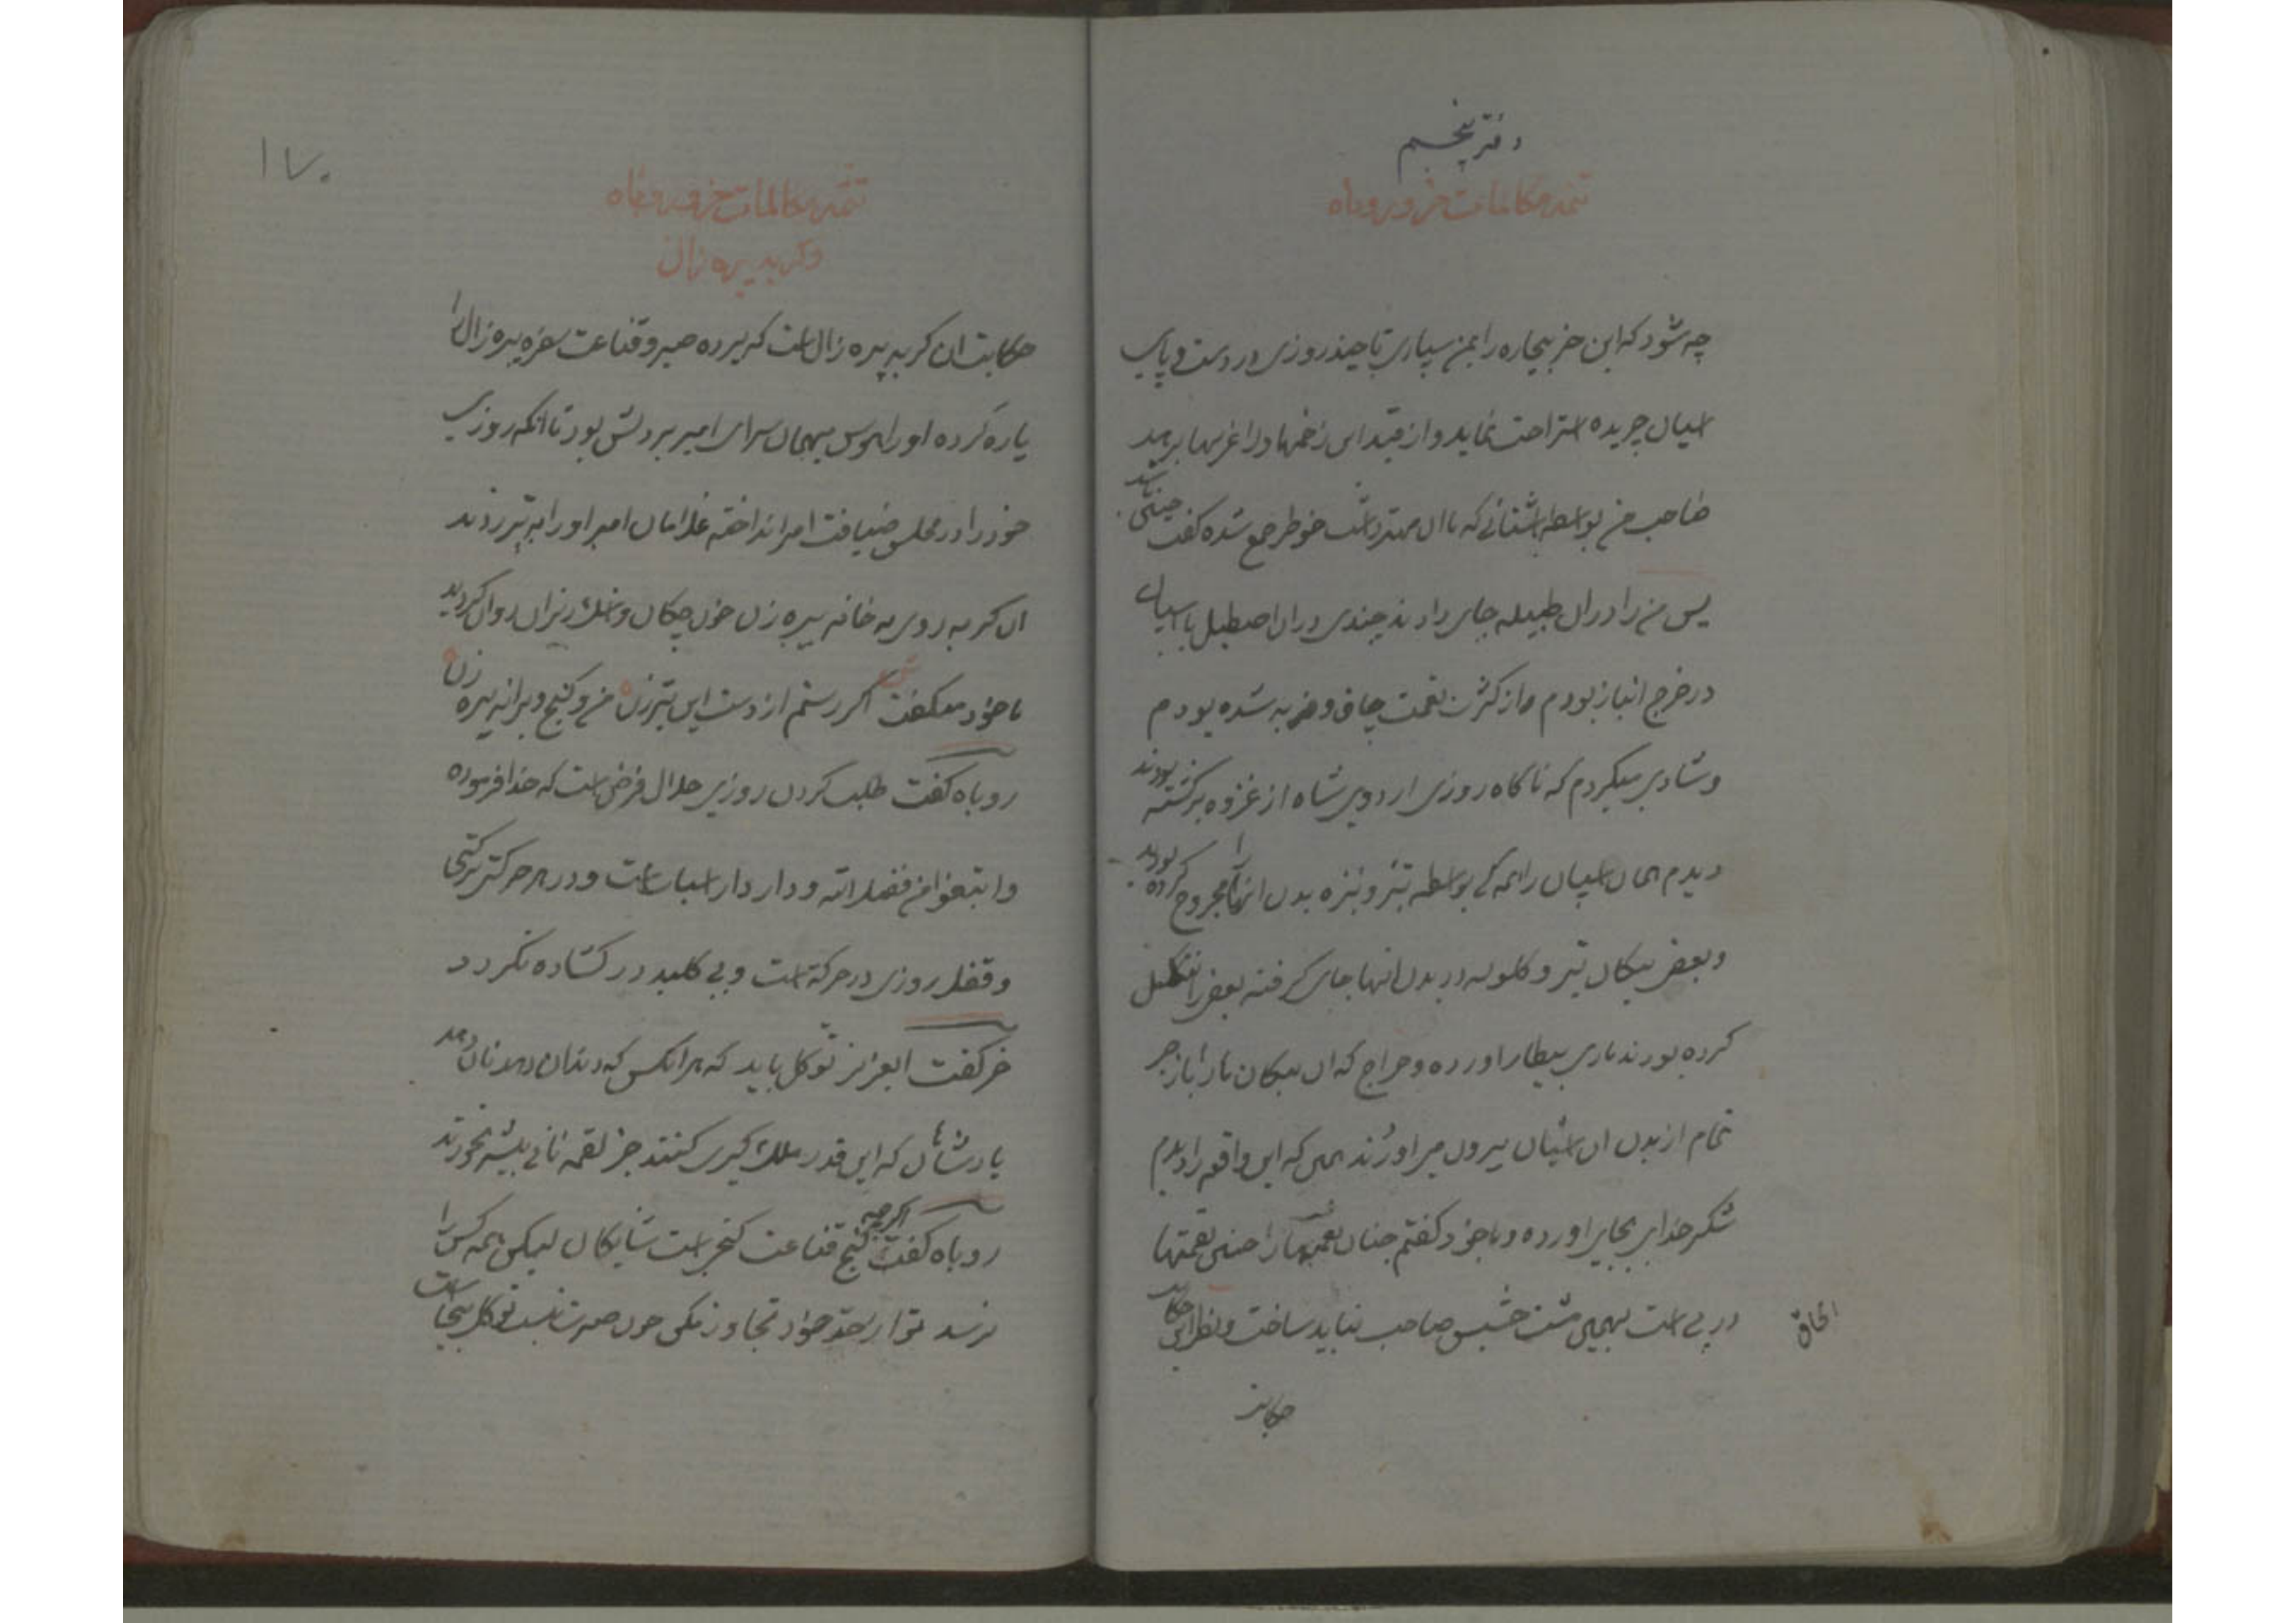 دفتر پنجم
تتمه مکالمات خر و روباه
چه شود که این خر بیچاره را بمن سپاری تا چند روزی در دست و پای
اسپان چریده استراحت نماید و از قید این زخمها و لاغریها برهد
صاحب من بواسطه اشنائی که با ان مهتر داشت خواطر جمع شده گفت چنین باشد
پس من را در ان طبیله جای دادند چندی در ان اصطبل با اسپان
در خرج انباز بودم و از کثرت نعمت چاق و فربه شده بودم
و شادی میکردم که ناگاه روزی اردوی شاه از غزوه برگشته بودند
دیدم همان اسپان را همه گی بواسطه تیر و نیزه بدن انها را مجروح کرده بودند
و بعضی پیکان تیر و گلوله در بدن انها جای گرفته بعضی را
کرده بودند باری بیطار اورده و جراح که ان پیکان ها را باز جر
تمام از بدن ان اسپان بیرون می اوردند همین که این واقعه را دیدم
شکر خدای بجای اورده و با خود گفتم چنان نعمتها را چنین نقمتها
در پی است بهمین مشت خسیس صاحب بباید ساخت و نظر این حکایت
الحاق
حکایت
۱۷۰
تتمه مکالمات خر و روباه
و گربه پیره زال
حکایت ان گربه پیره زال است که پرده صبر و قناعت سفره پیره زال را
پاره کرده او را هوس میهمان سرای امیر بر دلش بود تا انکه روزی
خود را در مجلس ضیافت امیر انداخته غلامان امیر او را به تیر زدند
ان گربه روی به خانه پیره زن خون چکان و اشک ریزان روان گردید
با خود میگفت اگر رستم از دست این تیر زن من و کنج ویرانه پیره زن
روباه گفت طلب کردن روزی حلال فرض است که خدا فرموده
وابتغوا من فضل الله و دار دار اسباب است و در هر حرکتی برکتی
و قفل روزی در حرکة است و بی کلید در کشاده نگردد
خر گفت ایعزیز توکل باید که هر انکس که دندان دهد نان دهد
پادشاهان که این قدر ملک گیری کنند جز لقمه نانی بیش نخورند
روباه گفت اگرچه گنج قناعت گنجی است شایگان لیکن همه کس را
نرسد تو از حد خود تجاوز مکن چون صبرت نیست توکل بیجا است